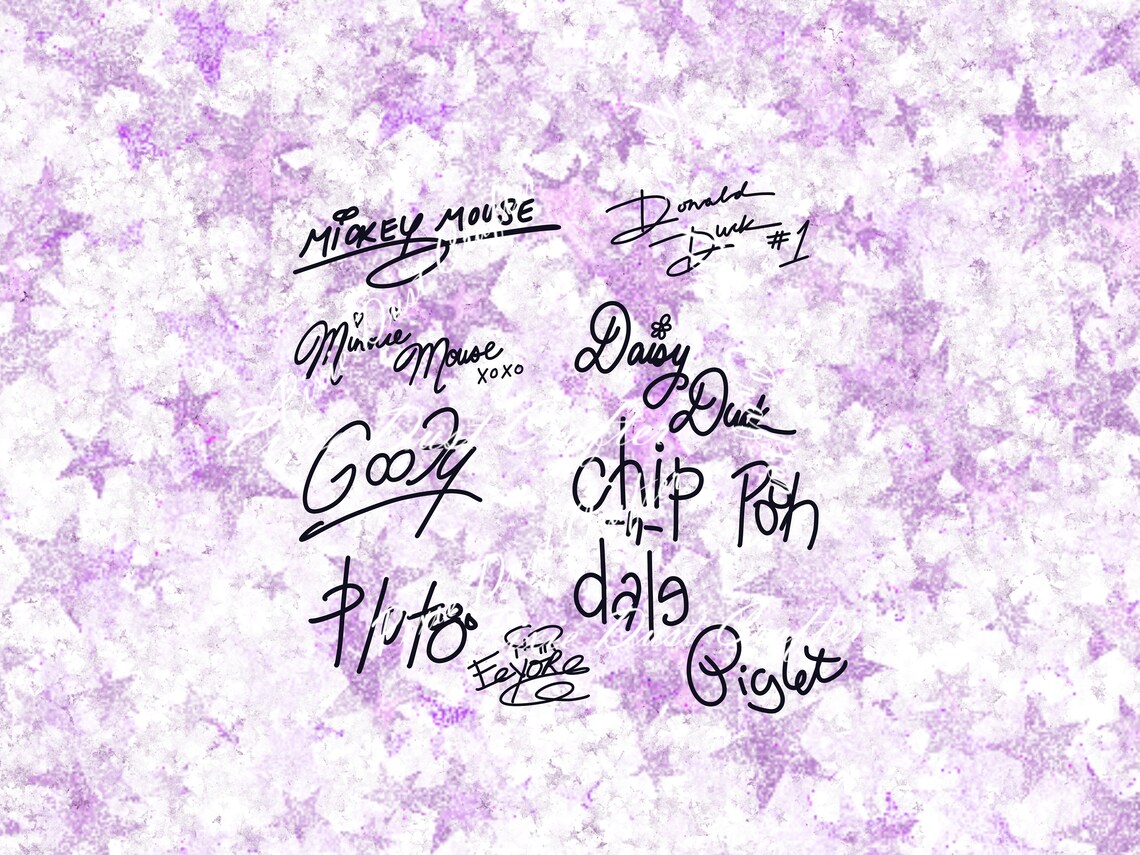 MICKEY MOUSE
Donald
Duck #1
Minnie
Mouse
xoxo
Daisy
Duck
Goofy
chip
-n-
dale
Pooh
Pluto
EeyoRe
Piglet